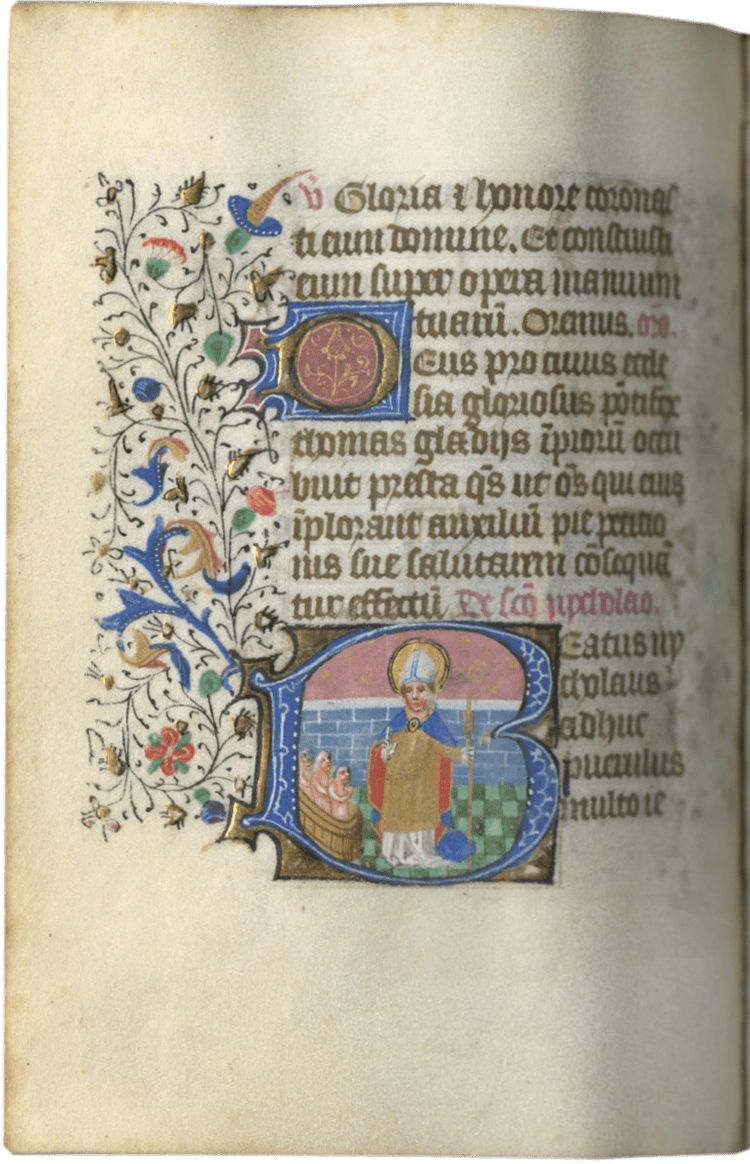 v̄ Gloria ⁊ honore coronas
ti eum domine. Et constituisti
eum super opera manuum
tuarū. Oremus. orō.
DEus pro cuius eccle
sia gloriosus pōtifex
thomas gladijs īpiorū occu
buit presta q̄s ut oēs qui eius
īplorant auxiliū pie peticio
nis sue salutarem cōsequā
tur effectū. De scō nycholao.
BEatus ny
cholaus
adhuc
puerulus
multo ie